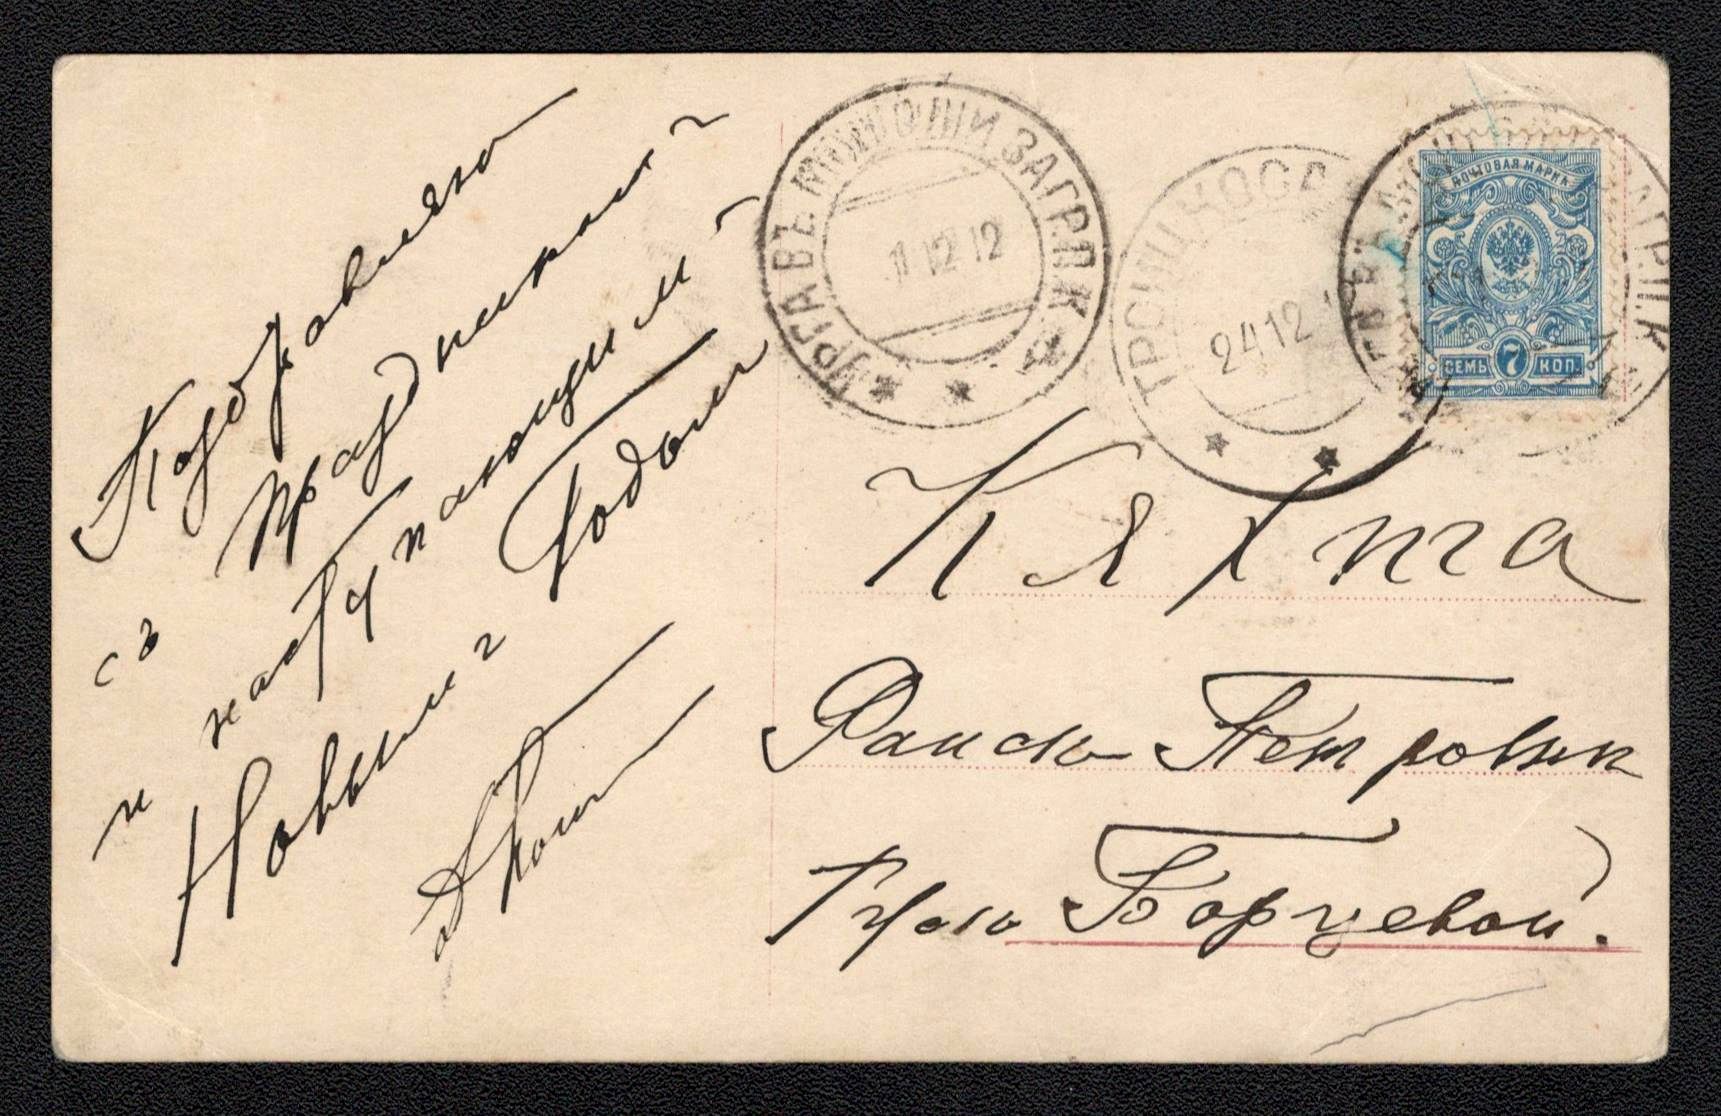 Поздравляю
съ праздникомъ
и наступающимъ
Новымъ Годомъ
УРГА ВЪ МОНГОЛІИ ЗАГР.П.К
12 12
ТРОИЦКОСА
24 12
ПОЧТОВАЯ МАРКА
СЕМЬ 7 КОП.
ЗАГР.П.К
Кяхта
Раисѣ Петровнѣ
Г-жѣ Борцевой.